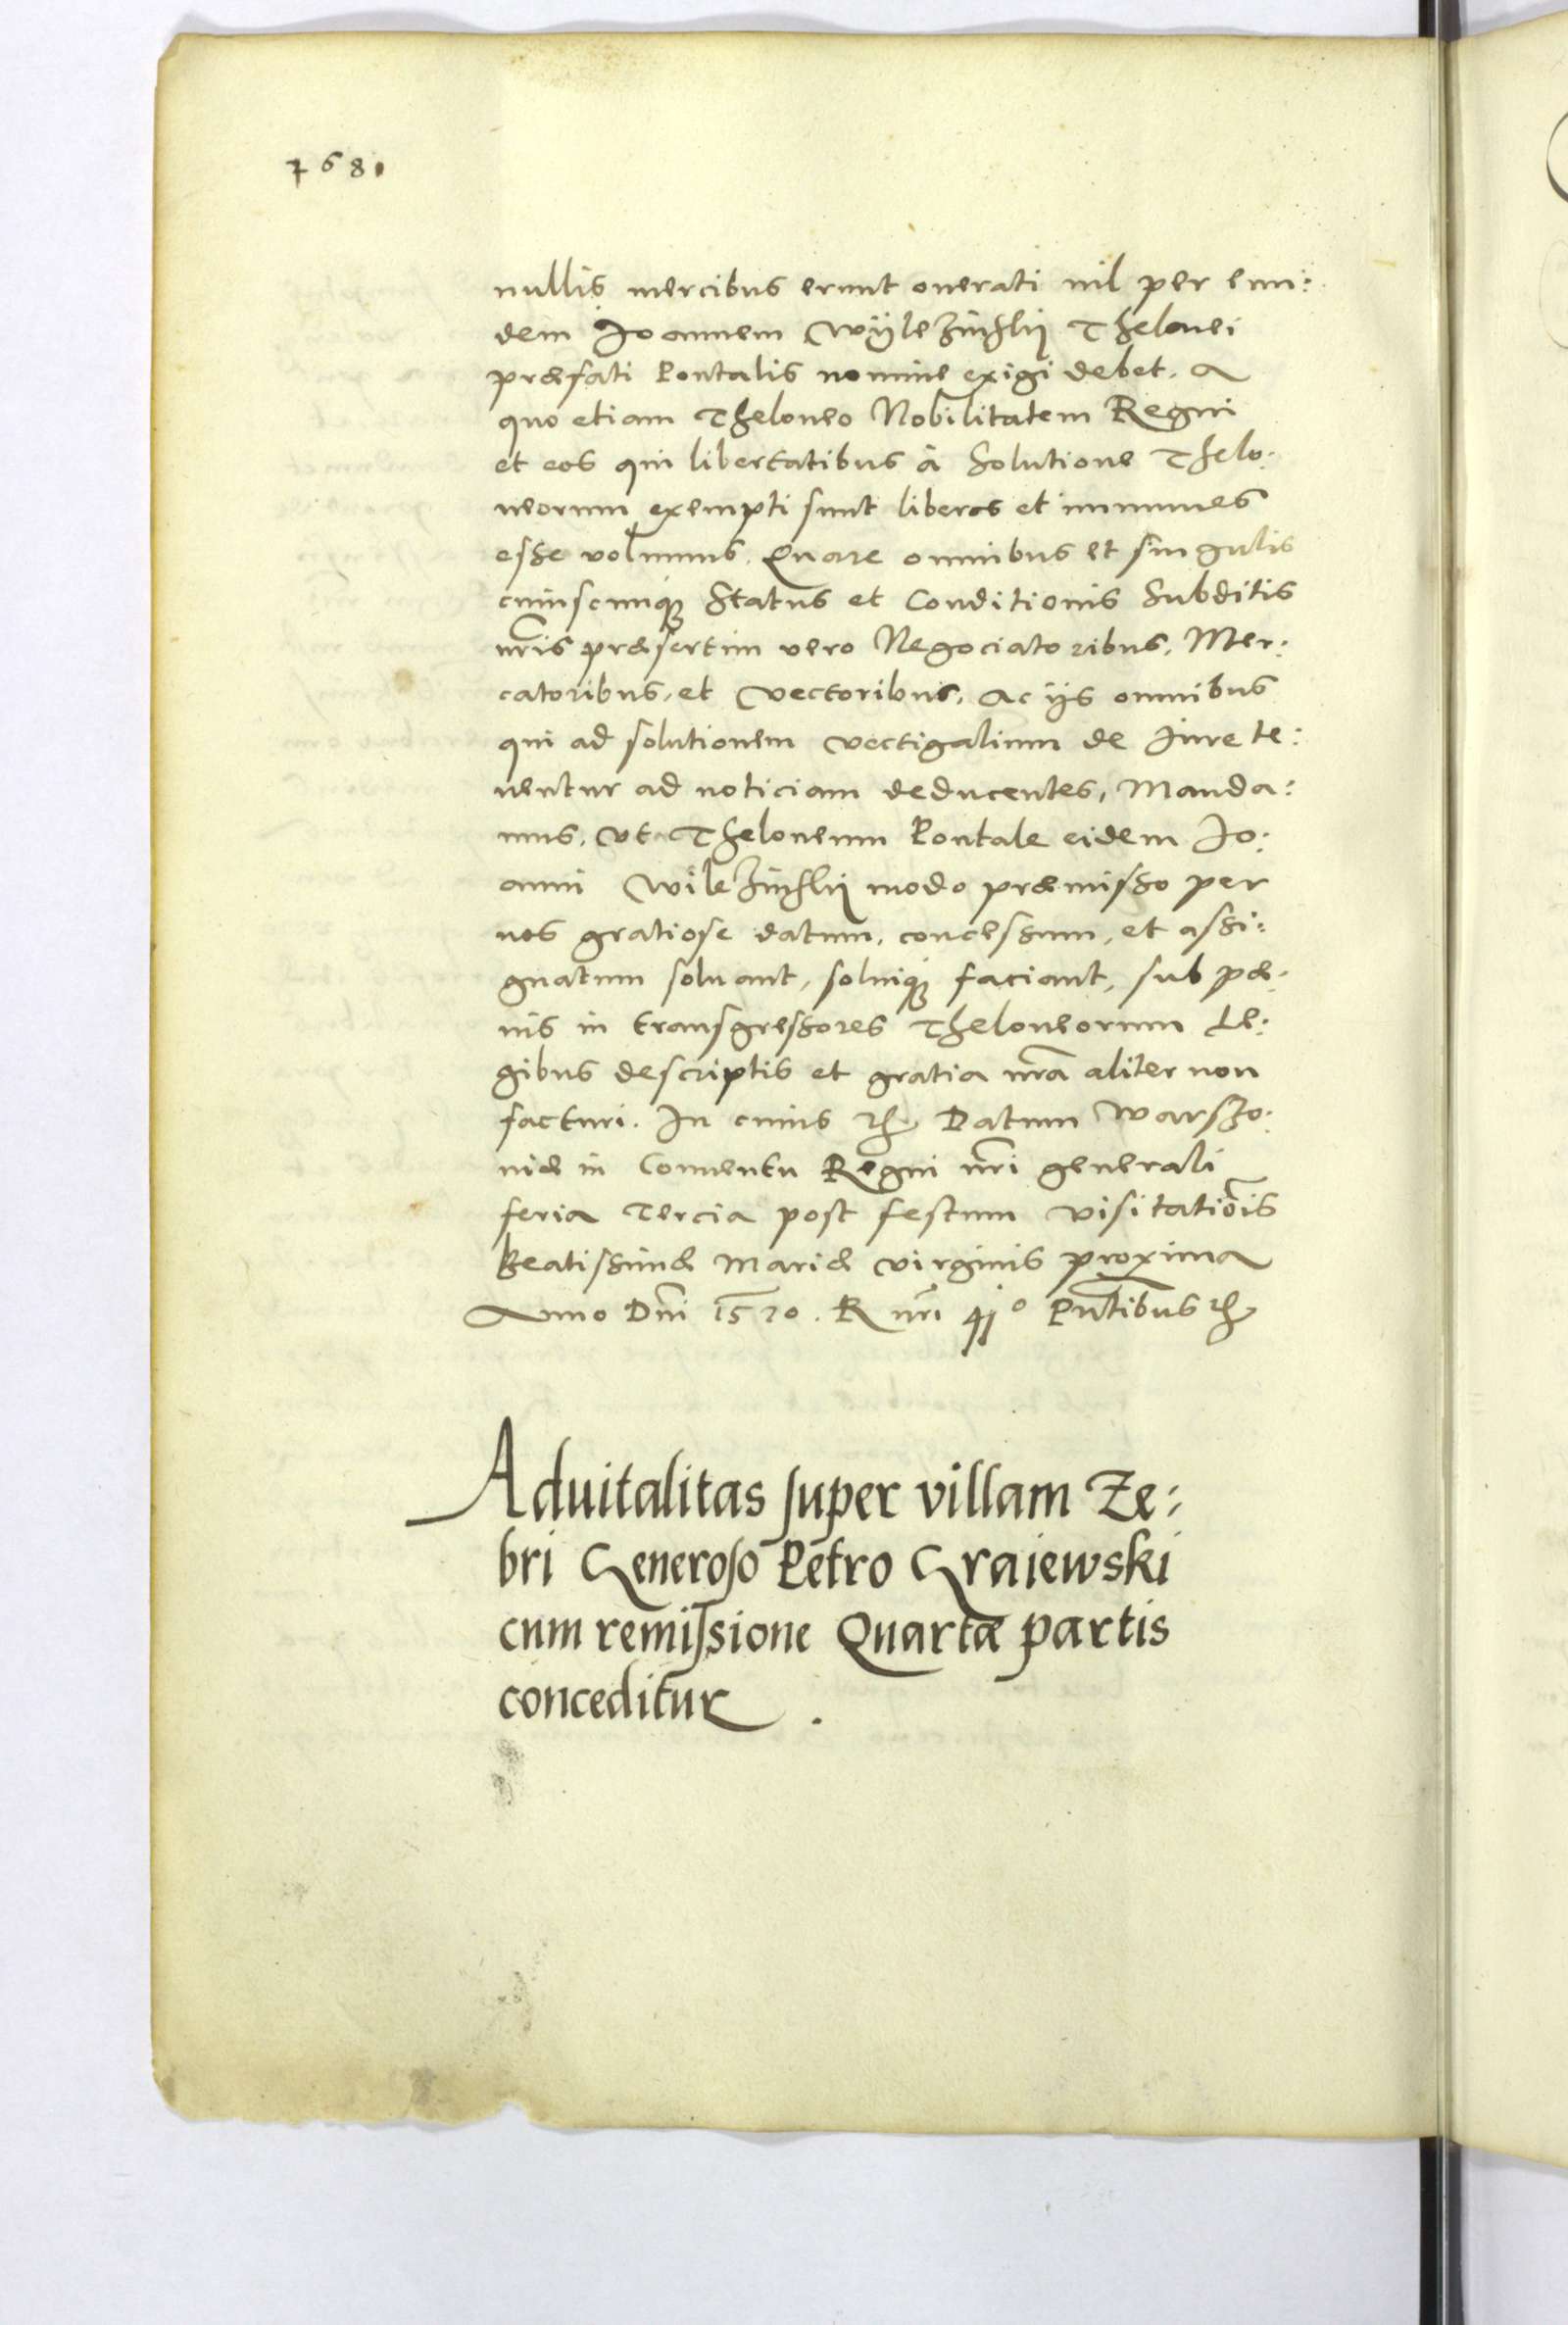 768
nullis mercibus erunt onerati nil per eun:
dem Joannem Wÿlezinsky Thelonei
præfati Pontalis nomine exigi debet. A
quo etiam Theloneo Nobilitatem Regni
et eos qui libertatibus à Solutione Thelo:
neorum exempti sunt liberos et immunes
esse volumus. Quare omnibus et singulis
cuiuscunq3 Status et Conditionis Subditis
nr̃is præsertim vero Negociatoribus, Mer:
catoribus, et Vectoribus, Ac ijs omnibus
qui ad solutionem vectigalium de Jure te:
nentur ad noticiam deducentes, Manda:
mus, Vt Theloneum Pontale eidem Jo:
anni modo præmisso per
nos gratiose datum, concessum, et assi:
gnatum soluant, soluiq3 faciant, sub pæ:
nis in transgressores Theloneorum Le:
gibus descriptis et gratia nr̃a aliter non
facturi. In cuius rei Datum Warszo:
niæ in Conuentu Regni nr̃i generali
feria Tercia post festum visitatiõis
Beatissimæ Mariæ virginis proxima
Anno Dñi 1570. R nr̃i 41º Pñtibus
Aduitalitas super villam Ze:
bri Generoso Petro Grajewski
cum remissione Quartæ partis
conceditur.